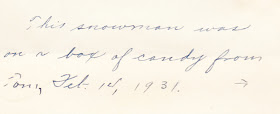 This snowman was
on a box of candy from
Tom, Feb. 14, 1931. →